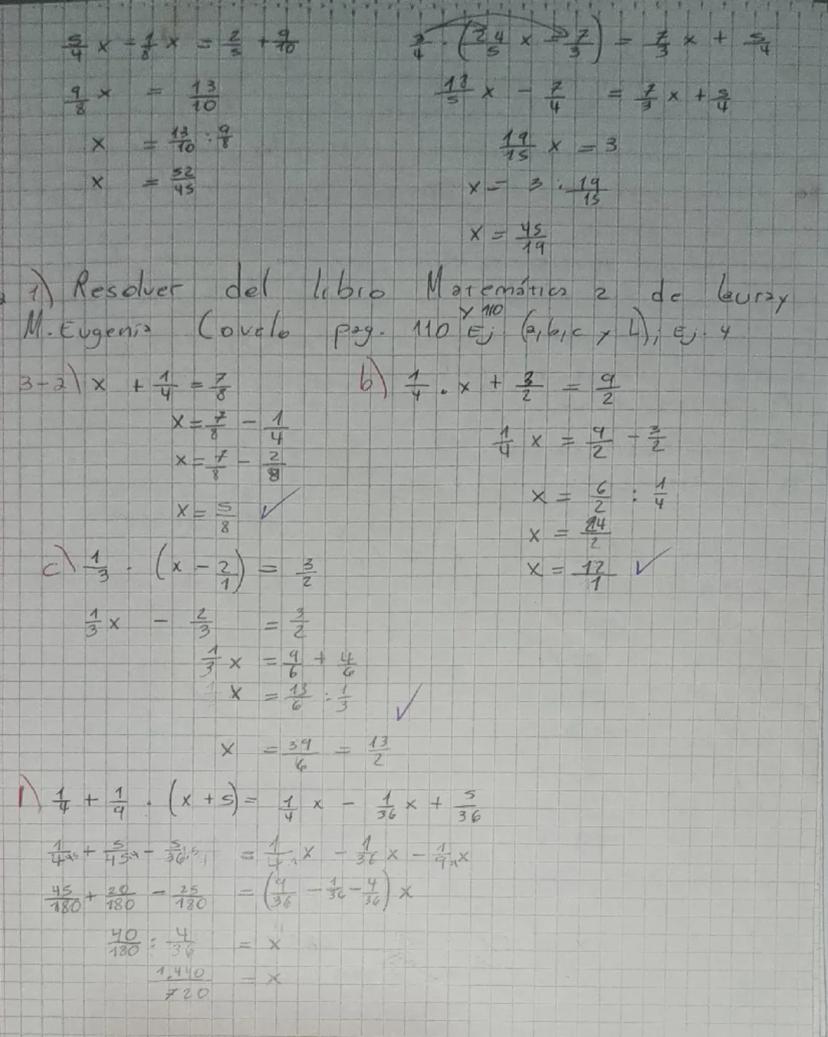 5/4 x - 1/8 x = 2/5 + 9/10
9/8 x = 13/10
x = 13/10 : 9/8
x = 52/45
3/4 · (24/5 x - 7/3) = 7/3 x + 5/4
18/5 x - 7/4 = 7/3 x + 5/4
19/15 x = 3
x = 3 : 19/15
x = 45/19
1) Resolver del libro Matemática 2 de
M. Eugenia Covelo pag. 110 y 110 Ej (a, b, c y L), Ej. 4
3-a) x + 1/4 = 7/8
x = 7/8 - 1/4
x = 7/8 - 2/8
x = 5/8 ✓
b) 1/4 . x + 3/2 = 9/2
1/4 x = 9/2 - 3/2
x = 6/2 : 1/4
x = 24/2
x = 12/1 ✓
c) 1/3 · (x - 2/1) = 3/2
1/3 x - 2/3 = 3/2
1/3 x = 9/6 + 4/6
x = 13/6 : 1/3
x = 39/6 = 13/2 ✓
1/4 + 1/9 · (x + 5) = 1/4 x - 1/36 x + 5/36
1/4 + 5/45 - 5/36 = 1/4 x - 1/36 x - 1/9 x
45/180 + 20/180 - 25/180 = (9/36 - 1/36 - 4/36) x
40/180 : 4/36 = x
1.440/720 = x